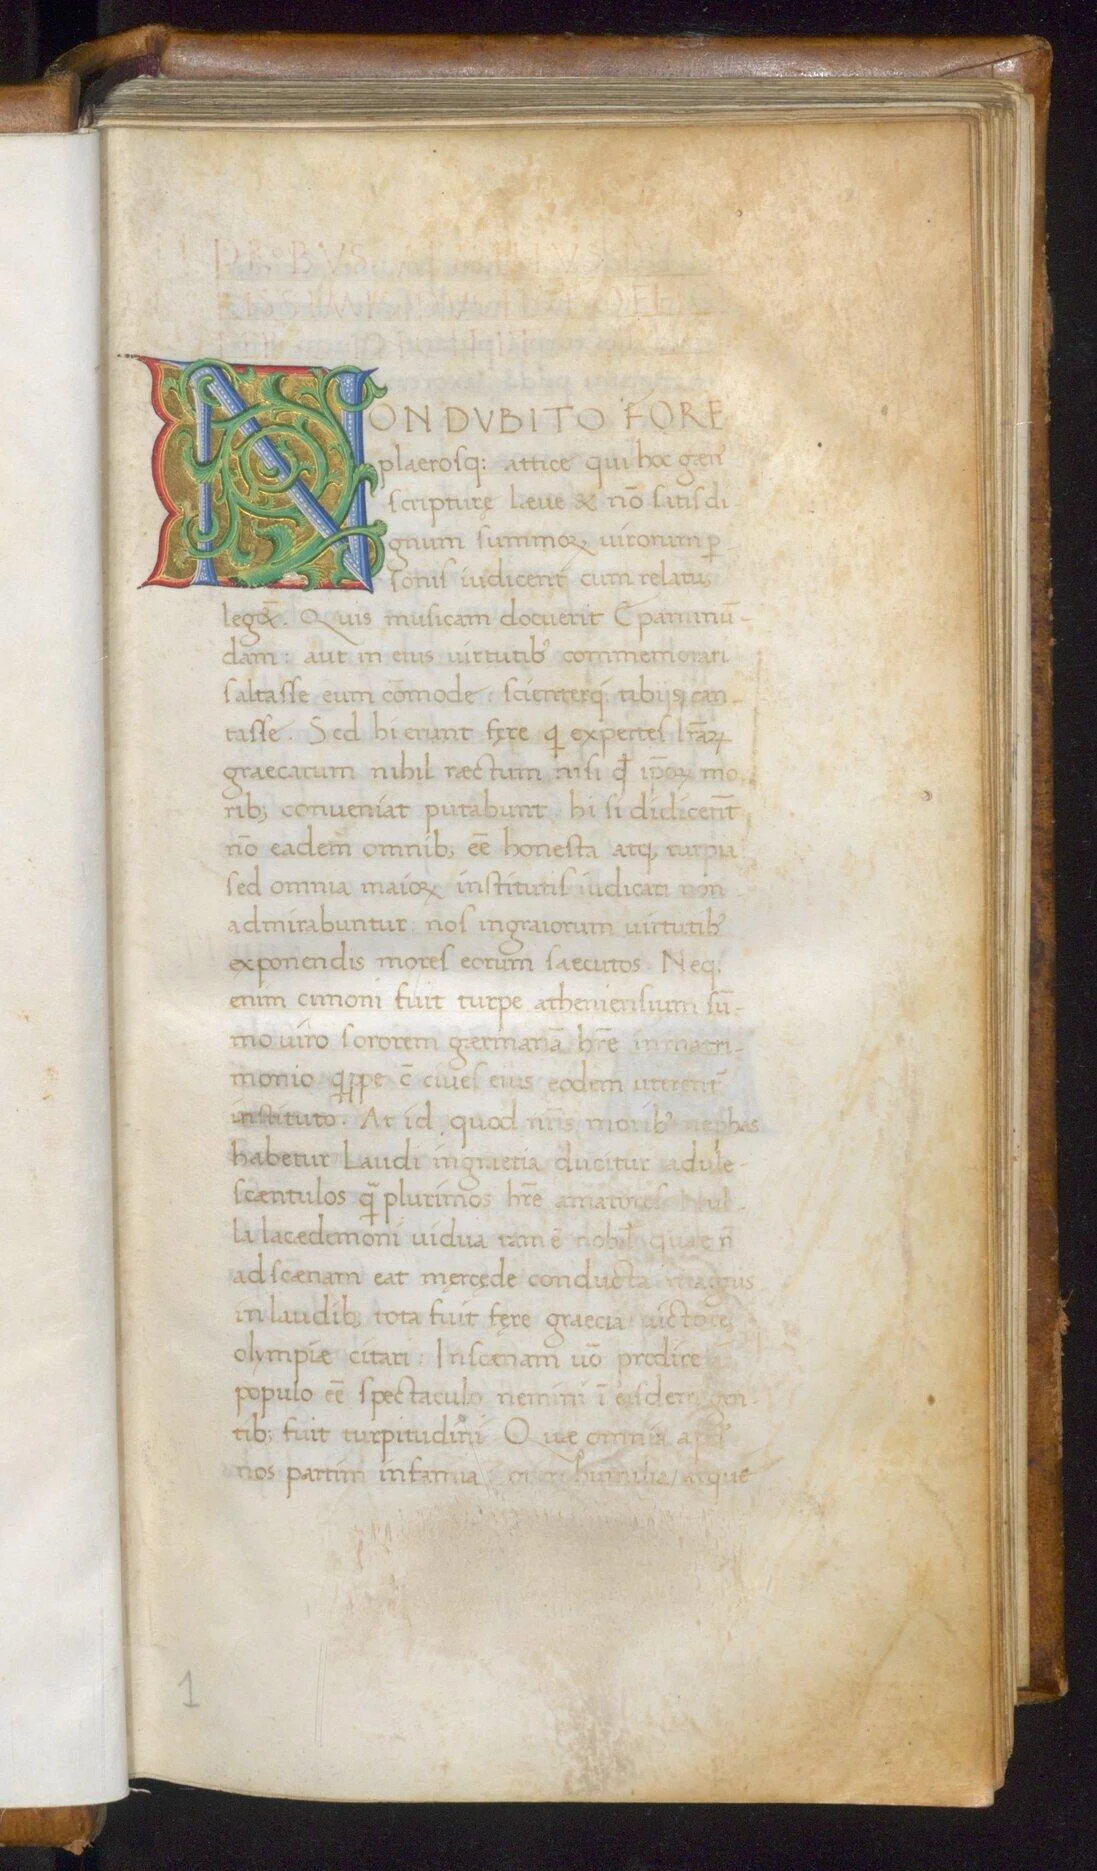 PROBVS
NON DVBITO FORE
plaerosq: attice qui hoc gæn᾽
scripturę læue & nō satis di-
gnum summoꝝ uirorum ꝑ
sonis iudicent̄ cum relatū
legēt̄. Quis musicam docuerit Epaminū-
dam: aut in eius uirtutib᾽ commemorari
saltasse eum cōmode: scienterq; tibijs can-
tasse. Sed hi erunt fęre q̇ expertes lr̄aꝝ
graecarum nihil ræctum nisi qđ ip̄oꝝ mo
rib; conueniat putabunt. hi si didicerīt
nō eadem omnib; eē honesta atq; turpia
sed omnia maioꝝ institutis iudicari non
admirabuntur: nos ingraiorum uirtutib᾽
exponendis mores eorum saecutos. Neq;
enim cimoni fuit turpe atheniensium sū-
mo uiro sororem gærmanā hr̄e in matri-
monio qꝑpe c̄ ciues eius eodem uterent̄
instituto. At id quod nr̄is morib᾽ nephas
habetur Laudi ingraetia ducitur adule-
scæntulos q̄ plurimos hr̄e amatores Nul-
la lacædemoni uidua tam ē nobil̄ quae n̄
ad scænam eat męrcęde conducta magnis
in laudib; tota fuit fęre graecia uictore
olympiæ citari: In scænam uō prodire
populo eē spectaculo nemini ī eisdem gen-
tib; fuit turpitudini Quæ omnia apd᾽
nos partim infamia humilia/ atque
1